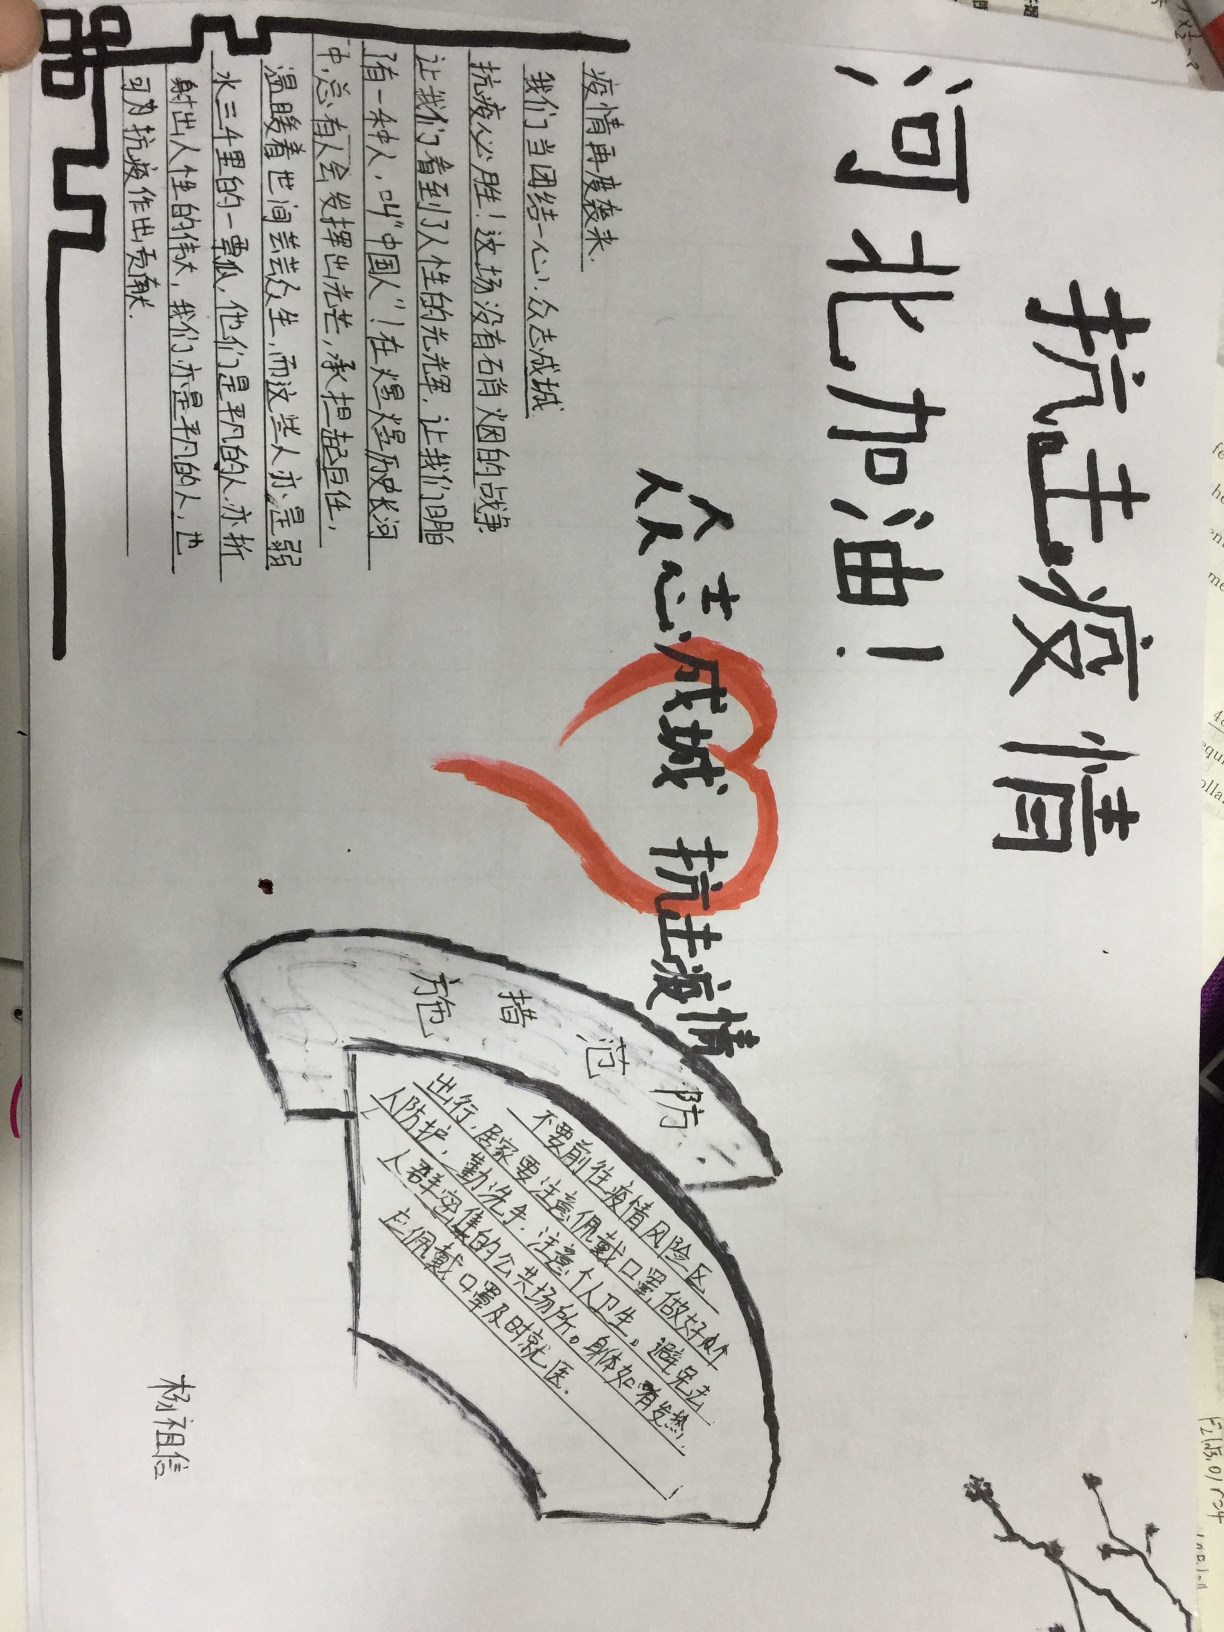 抗击疫情
河北加油！
众志成城 抗击疫情
疫情再度袭来.
我们当团结一心，众志成城
抗疫必胜！这场没有硝烟的战争
让我们看到了人性的光辉，让我们明
有一种人，叫“中国人”！在煌煌历史长河
中，总有人会发挥出光芒，承担起巨任，
温暖着世间芸芸众生，而这些人亦是弱
水三千里的一票瓜，他们是平凡的人，亦折
射出人性的伟大，我们亦是平凡的人，也
可为抗疫作出贡献.
防范措施
不要前往疫情风险区
出行，居家要注意佩戴口罩，做好个
人防护，勤洗手，注意个人卫生。避免去
人群密集的公共场所。身体如有发热，
应佩戴口罩及时就医.
杨祖信